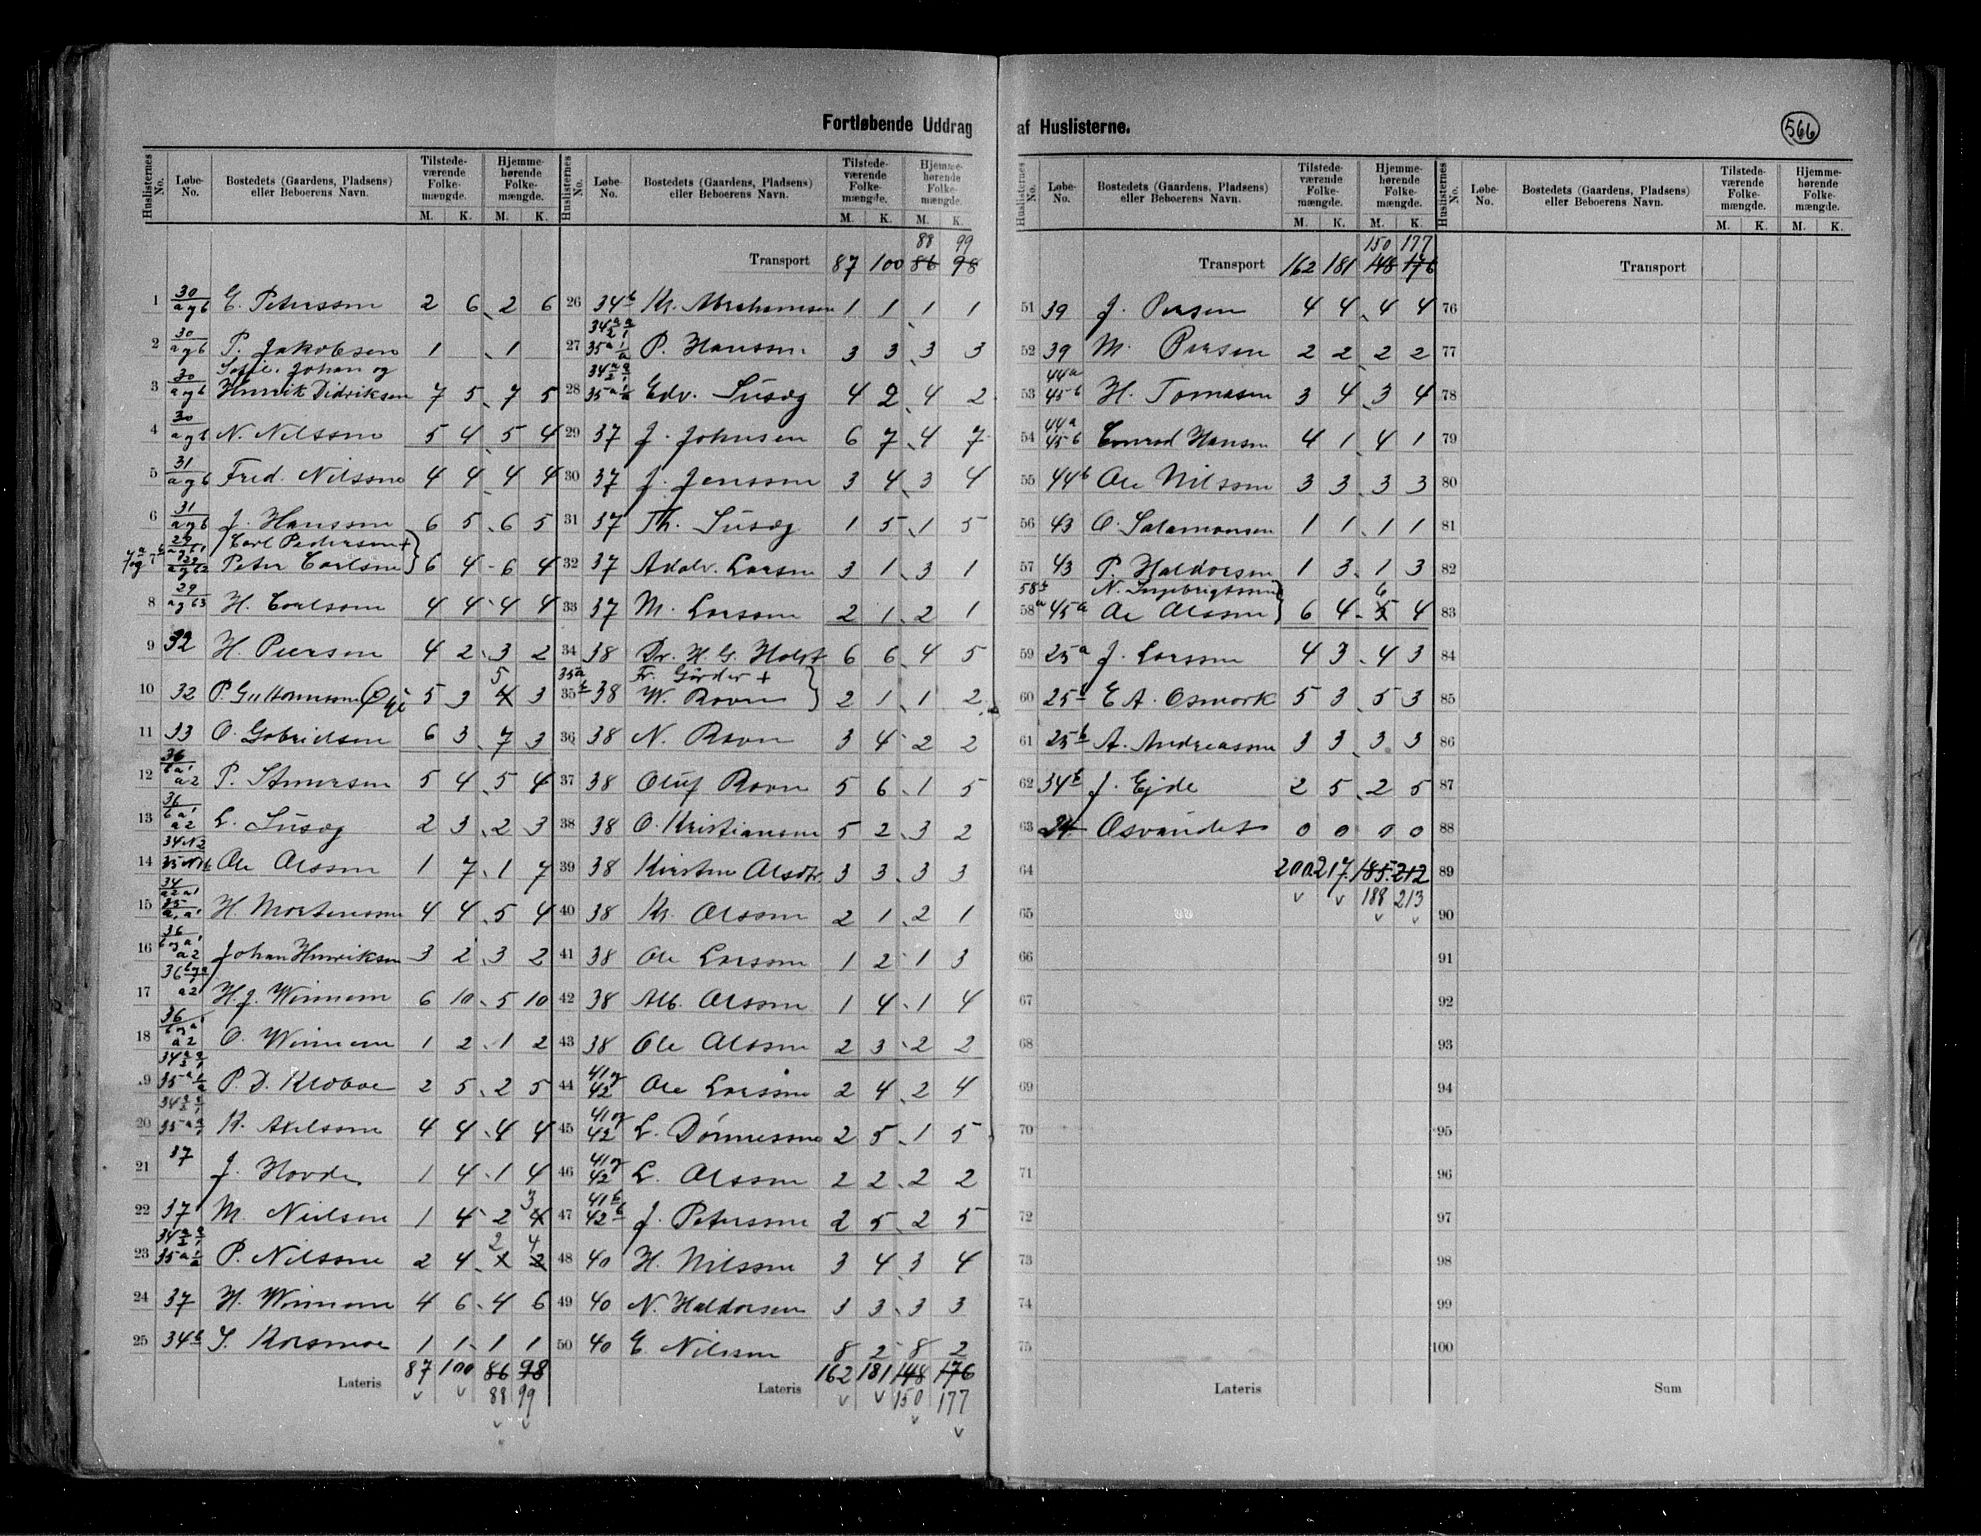 Fortløbende Uddrag af Huslisterne.
566
Huslisternes No. Løbe-No. Bostedets (Gaardens, Pladsens) eller Beboerens Navn. Tilstedeværende Folkemængde. M. K. Hjemmehørende Folkemængde. M. K.
1 30/a g b E. Peterssen 2 6 2 6
2 30/a g b P. Jakobsen 1 1
Johan og
3 30/a g b Henrik Didriksen 7 5 7 5
4 30/a g b N. Nilssen 5 4 5 4
5 31/a g b Fred. Nilssen 4 4 4 4
6 31/a g b J. Hanssen 6 5 6 5
Carl Pedersen +
7 Peter Carlsen 6 4 6 4
8 29 H. Carlssen 4 4 4 4
9 32 H. Peersen 4 2 3 2
5
10 32 3 P. 5 3 4 3
11 33 O. Gabrielsen 6 3 7 3
12 36 5 4 5 4
13 36 L. Susæg 2 3 2 3
14 Ole Olssen 1 7 1 7
15 H. Mortenssen 4 4 5 4
16 36 Johan Henriksen 3 2 3 2
17 36 H. J. Winnem 6 10 5 10
18 36 O. Winnem 1 2 1 2
19 P. D. Kloboe 2 5 2 5
20 K. Axelssen 4 4 4 4
21 37 J. Hovde 1 4 1 4
3
22 37 M. Nielsen 1 4 2 4
2 4
23 P. Nilssen 2 4 1 2
24 37 H. Winnem 4 6 4 6
25 34b 1 1 1 1
Lateris 87 100 86 98
88 99
Huslisternes No. Løbe-No. Bostedets (Gaardens, Pladsens) eller Beboerens Navn. Tilstedeværende Folkemængde. M. K. Hjemmehørende Folkemængde. M. K.
88 99
Transport 87 100 86 98
26 34b Kr. Abrahamsen 1 1 1 1
27 P. Hanssen 3 3 3 3
28 Edv. Susæg 4 2 4 2
29 37 J. Johnsen 6 7 4 7
30 37 J. Jenssen 3 4 3 4
31 37 Th. Susæg 1 5 1 5
32 37 Adolv. Larsen 3 1 3 1
33 37 M. Larssen 2 1 2 1
34 38 Dr. H. G. Holst 6 6 4 5
35a Fr. Gørder +
35b 38 W. Ravn 2 1 1 2
36 38 N. Ravn 3 4 2 2
37 38 Oluf Ravn 5 6 1 5
38 38 O. Kristiansen 5 2 3 2
39 38 Kirsten Olsdtr. 3 3 3 3
40 38 Kr. Olssen 2 1 2 1
41 38 Ole Larssen 1 2 1 3
42 38 Alb. Olssen 1 4 1 4
43 38 Ole Olssen 2 3 2 2
44 41 og 42 Ole Larssen 2 4 2 4
45 41 og 42 L. Dønnessen 2 5 1 5
46 41 og 42 L. Olssen 2 2 2 2
47 41b 42b J. Peterssen 2 5 2 5
48 40 H. Nilssen 3 4 3 4
49 40 N. Haldorsen 3 3 3 3
50 40 E. Nilssen 8 2 8 2
Lateris 162 181 148 176
150 177
Huslisternes No. Løbe-No. Bostedets (Gaardens, Pladsens) eller Beboerens Navn. Tilstedeværende Folkemængde. M. K. Hjemmehørende Folkemængde. M. K.
150 177
Transport 162 181 148 176
51 39 J. Persen 4 4 4 4
52 39 M. Persen 2 2 2 2
53 44a 45b H. Tomasen 3 4 3 4
54 44a 45b Conrad Hansen 4 1 4 1
55 44b Ole Nilssen 3 3 3 3
56 43 O. Salamonsen 1 1 1 1
57 43 P. Haldorsen 1 3 1 3
58b N. Ingebrigtsen 6
58a 45a Ole Olssen 6 4 5 4
59 25a J. Larssen 4 3 4 3
60 25b E A. Osmork 5 3 5 3
61 25b A. Andreassen 3 3 3 3
62 34b J. Ejde 2 5 2 5
63 24 Osvandet 0 0 0 0
64 200 217 185 212
65 188 213
66
67
68
69
70
71
72
73
74
75
Lateris
Huslisternes No. Løbe-No. Bostedets (Gaardens, Pladsens) eller Beboerens Navn. Tilstedeværende Folkemængde. M. K. Hjemmehørende Folkemængde. M. K.
Transport
76
77
78
79
80
81
82
83
84
85
86
87
88
89
90
91
92
93
94
95
96
97
98
99
100
Sum